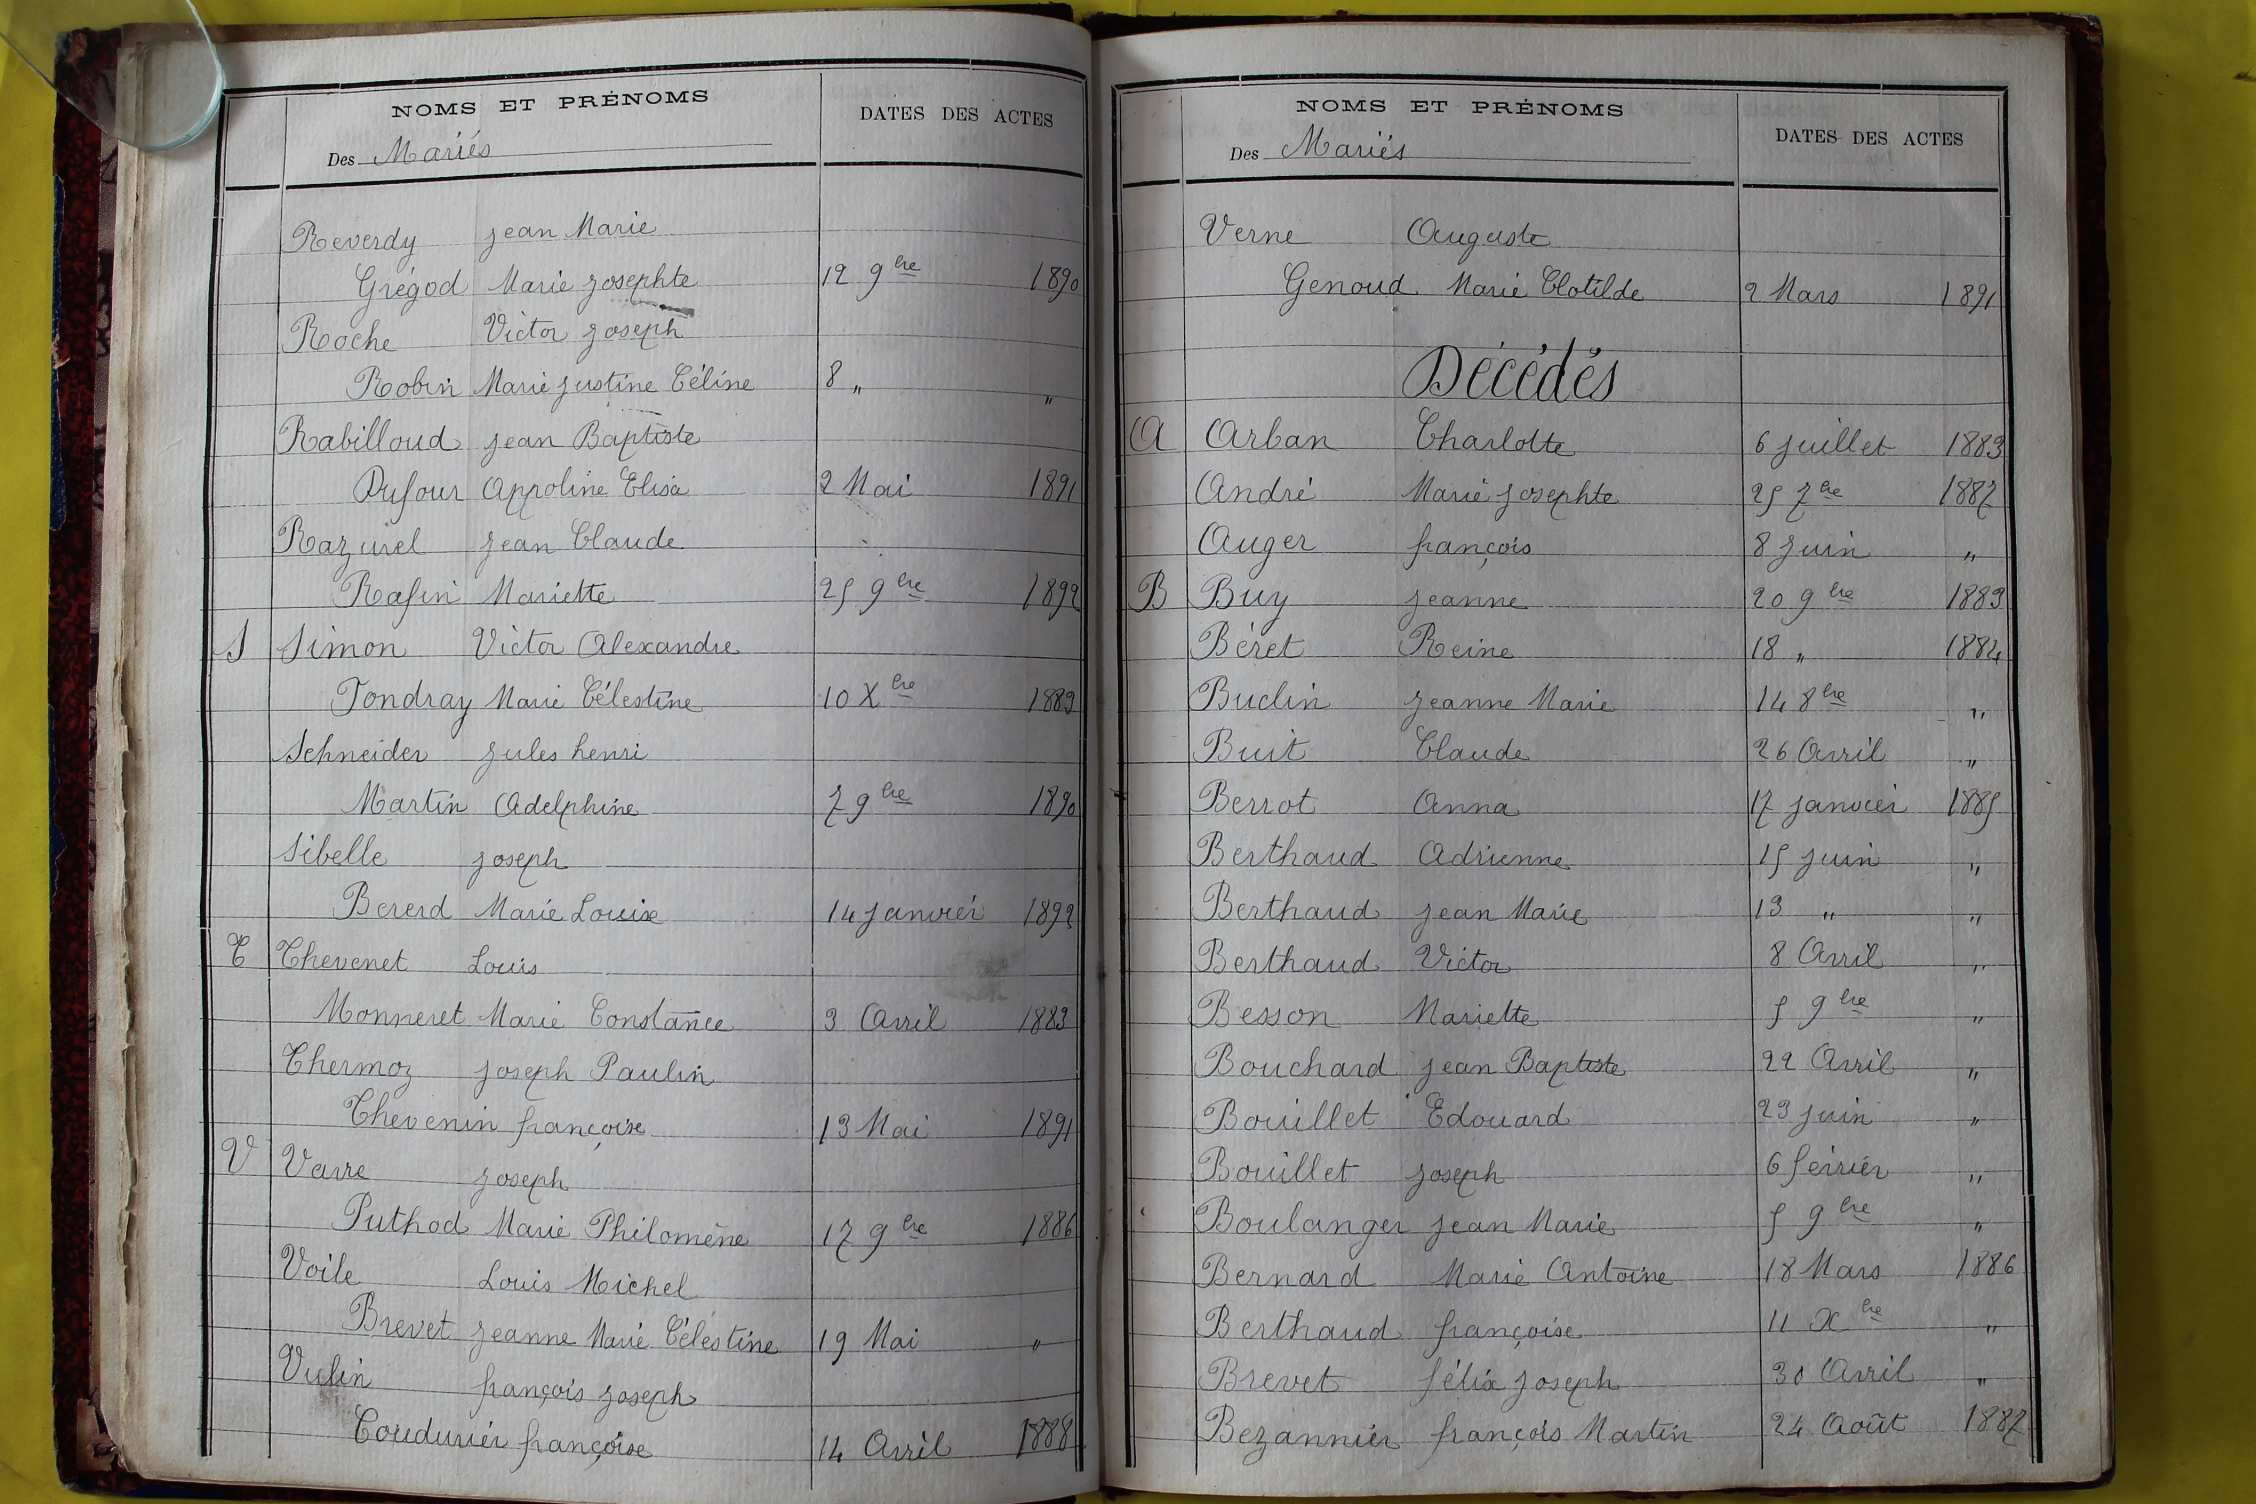 NOMS ET PRÉNOMS
DATES DES ACTES
Des Mariés
Reverdy Jean Marie
Grégod Marie Josephte 12 9bre 1890
Roche Victor Joseph
Robin Marie Justine Céline 8 " "
Rabilloud Jean Baptiste
Dufour Appoline Elisa 2 Mai 1891
Razurel Jean Claude
Rafin Mariette 25 9bre 1892
S Simon Victor Alexandre
Tondray Marie Célestine 10 Xbre 1883
Schneider Jules henri
Martin Adelphine 7 9bre 1890
Sibelle Joseph
Bererd Marie Louise 14 Janvier 1892
T Thevenet Louis
Monneret Marie Constance 3 Avril 1883
Thermoz Joseph Paulin
Thevenin françoise 13 Mai 1891
V Varre Joseph
Puthod Marie Philomène 17 9bre 1886
Voile Louis Michel
Brevet Jeanne Marie Célestine 19 Mai "
Vulin françois Joseph
Couduriér françoise 14 Avril 1888
NOMS ET PRÉNOMS
DATES DES ACTES
Des Mariés
Verne Auguste
Genoud Marie Clotilde 2 Mars 1891
Décédés
A Arban Charlotte 6 Juillet 1883
André Marie Josephte 25 7bre 1887
Auger françois 8 Juin "
B Buy Jeanne 20 9bre 1883
Béret Reine 18 " 1884
Buclin Jeanne Marie 14 8bre "
Buit Claude 26 Avril "
Berrot Anna 17 Janvier 1885
Berthaud Adrienne 15 Juin "
Berthaud Jean Marie 13 " "
Berthaud Victor 8 Avril "
Besson Mariette 5 9bre "
Bouchard Jean Baptiste 22 Avril "
Bouillet Edouard 23 Juin "
Bouillet Joseph 6 février "
Boulanger Jean Marie 5 9bre "
Bernard Marie Antoine 18 Mars 1886
Berthaud françoise 11 Xbre "
Brevet félix Joseph 30 Avril "
Bezannier françois Martin 24 Août 1887